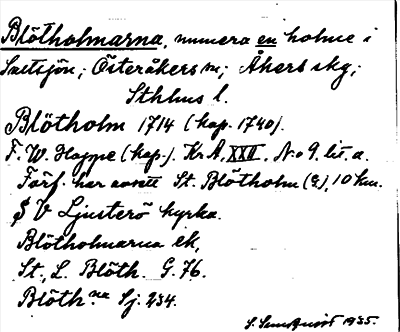 Blötholmarna, numera en holme i
Saltsjön; Österåkers sn; Åkers skg;
Sthlms l.
Blötholm 1714 (kop. 1740).
F. W. Hoppe (kop.). Kr A, XXII. No 9. lit. a.
Förf. har avsett St. Blötholm (?), 10 km.
S V Ljusterö kyrka.
Blötholmarna ek,
St., L. Blöth. G. 76.
Blöth. na Sj. 234.
1935.